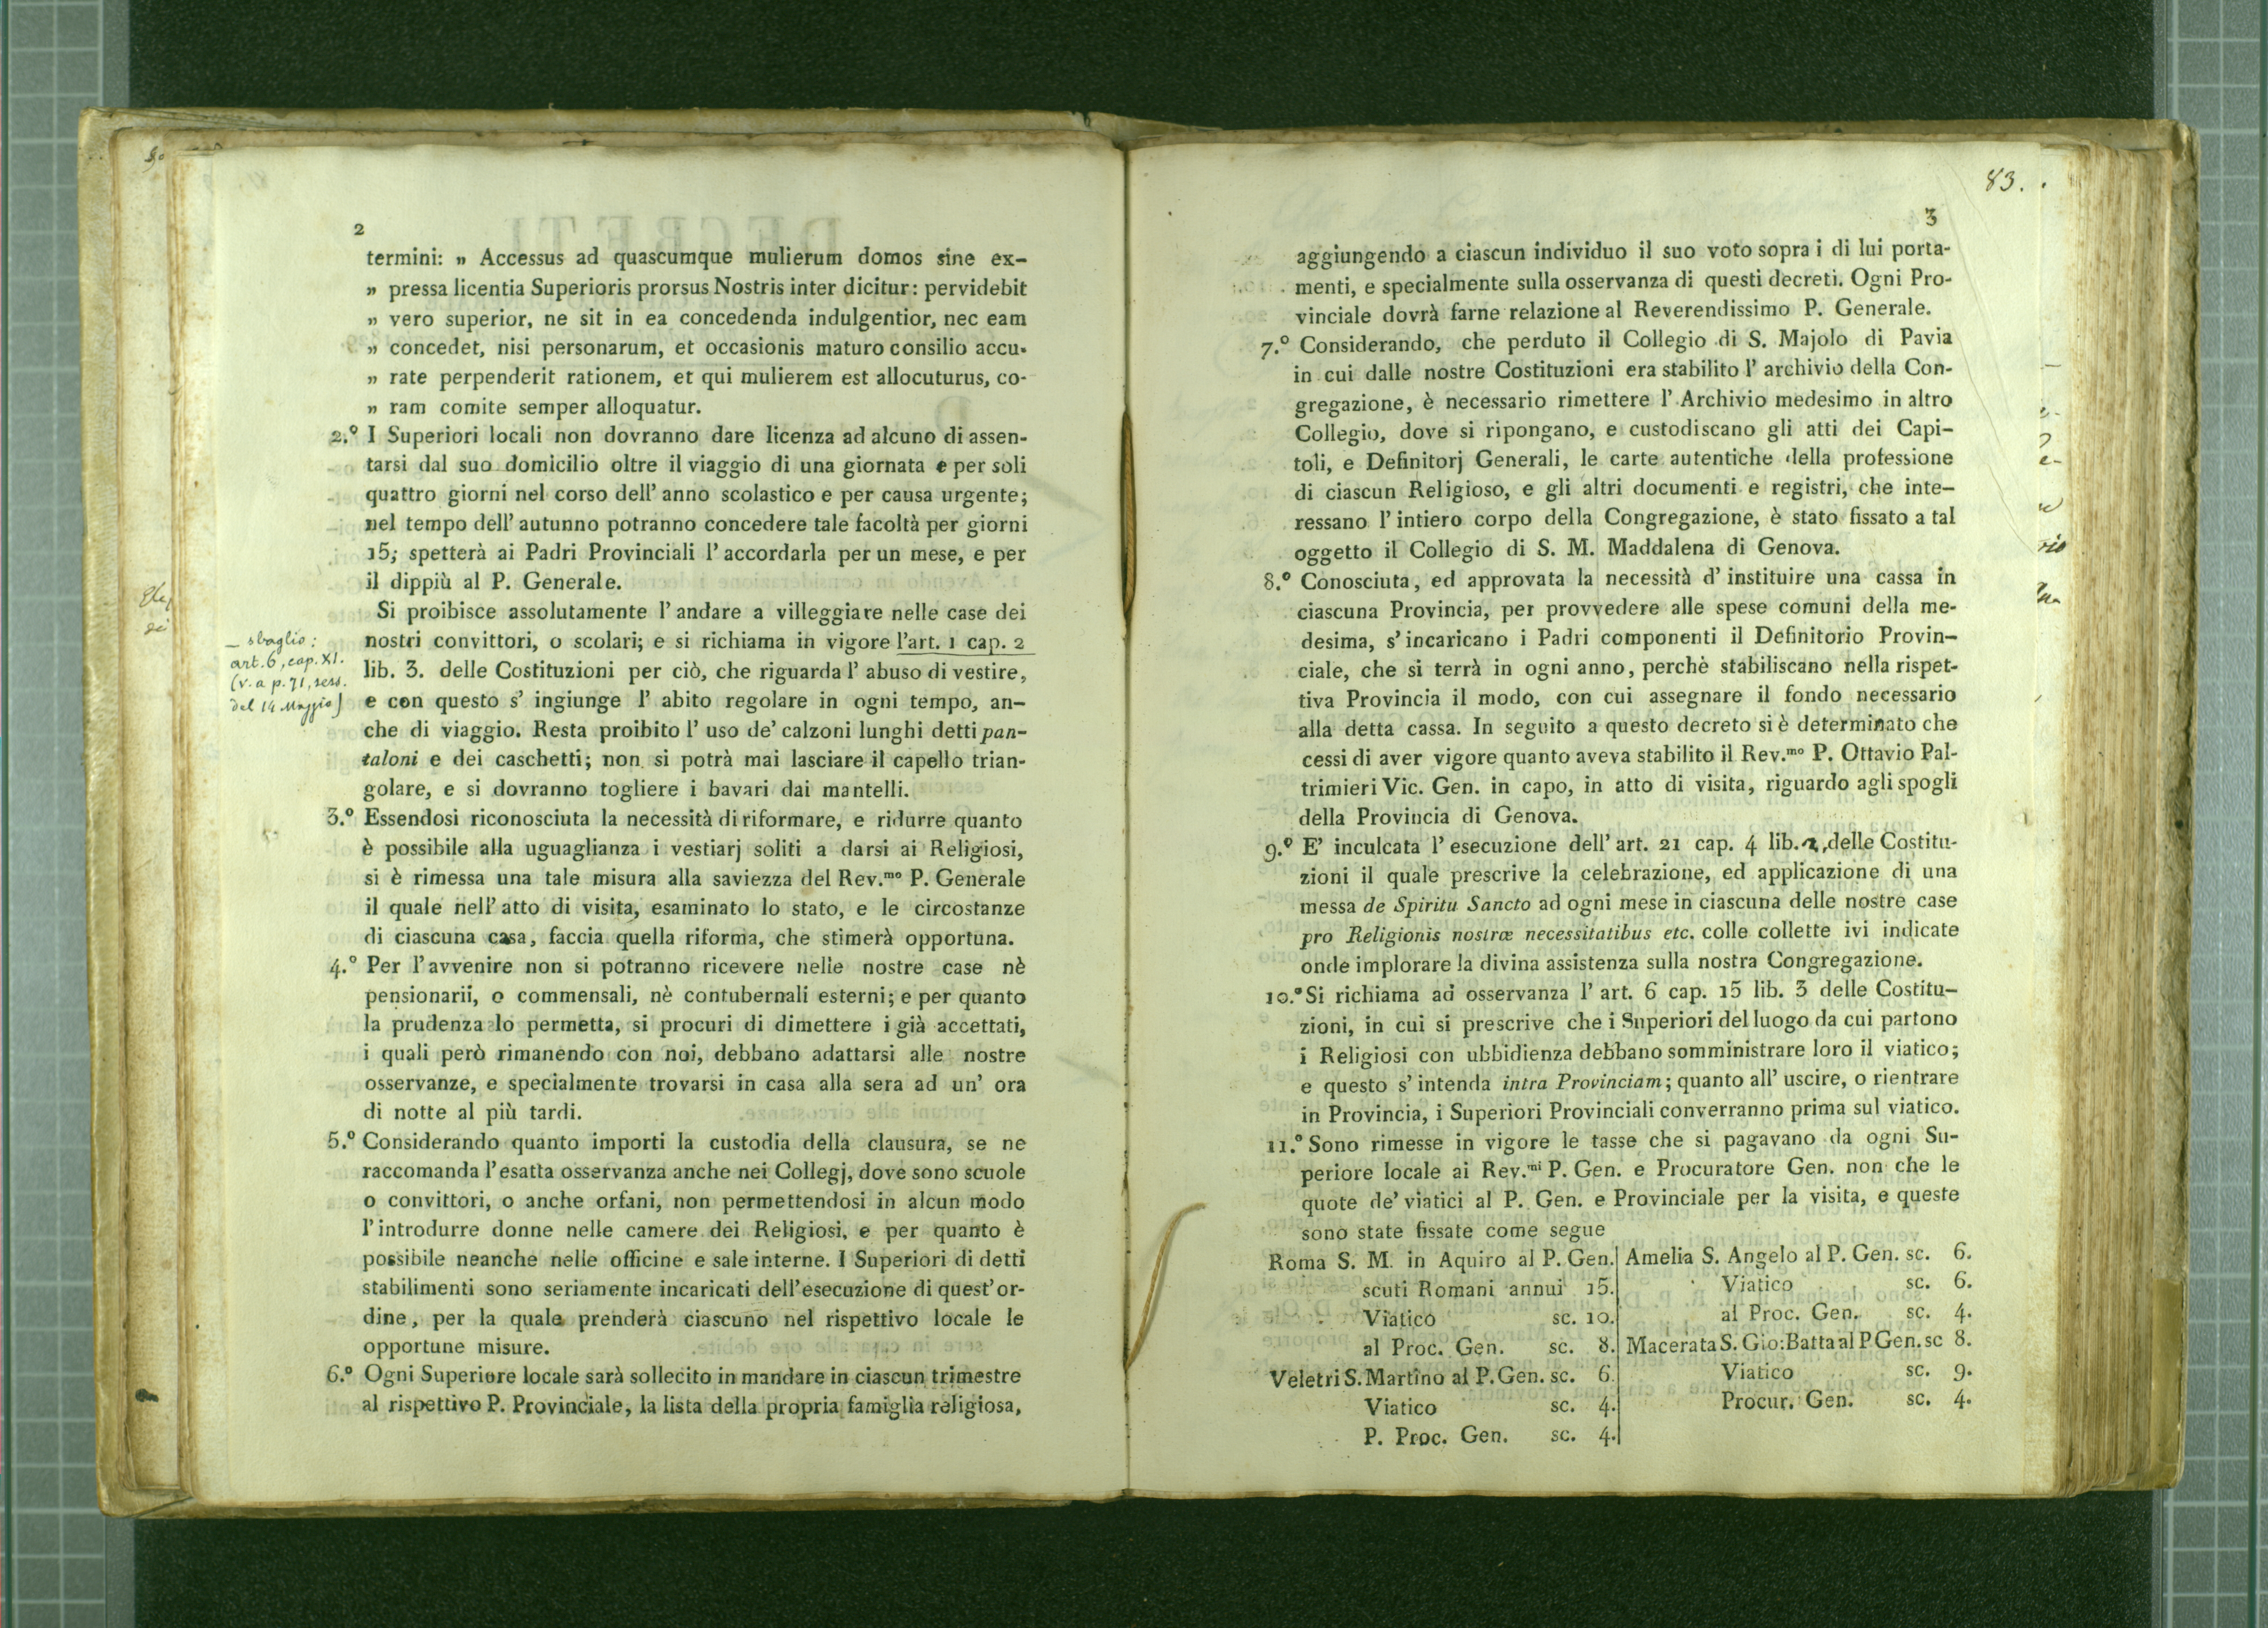 2
termini: „ Accessus ad quascumque mulierum domos sine ex-
„ pressa licentia Superioris prorsus Nostris inter dicitur: pervidebit
„ vero superior, ne sit in ea concedenda indulgentior, nec eam
„ concedet, nisi personarum, et occasionis maturo consilio accu-
„ rate perpenderit rationem, et qui mulierem est allocuturus, co-
„ ram comite semper alloquatur.
2.º I Superiori locali non dovranno dare licenza ad alcuno di assen-
tarsi dal suo domicilio oltre il viaggio di una giornata e per soli
quattro giorni nel corso dell' anno scolastico e per causa urgente;
nel tempo dell' autunno potranno concedere tale facoltà per giorni
15; spetterà ai Padri Provinciali l' accordarla per un mese, e per
il dippiù al P. Generale.
Si proibisce assolutamente l' andare a villeggiare nelle case dei
nostri convittori, o scolari; e si richiama in vigore l'art. 1 cap. 2
lib. 3. delle Costituzioni per ciò, che riguarda l' abuso di vestire,
e con questo s' ingiunge l' abito regolare in ogni tempo, an-
che di viaggio. Resta proibito l' uso de' calzoni lunghi detti pan-
taloni e dei caschetti; non si potrà mai lasciare il capello trian-
golare, e si dovranno togliere i bavari dai mantelli.
— sbaglio:
art. 6, cap. XI.
(v. a p. 71, sess.
del 14 Maggio)
3.º Essendosi riconosciuta la necessità di riformare, e ridurre quanto
è possibile alla uguaglianza i vestiarj soliti a darsi ai Religiosi,
si è rimessa una tale misura alla saviezza del Rev.mo P. Generale
il quale nell' atto di visita, esaminato lo stato, e le circostanze
di ciascuna casa, faccia quella riforma, che stimerà opportuna.
4.º Per l'avvenire non si potranno ricevere nelle nostre case nè
pensionarii, o commensali, nè contubernali esterni; e per quanto
la prudenza lo permetta, si procuri di dimettere i già accettati,
i quali però rimanendo con noi, debbano adattarsi alle nostre
osservanze, e specialmente trovarsi in casa alla sera ad un' ora
di notte al più tardi.
5.º Considerando quanto importi la custodia della clausura, se ne
raccomanda l'esatta osservanza anche nei Collegj, dove sono scuole
o convittori, o anche orfani, non permettendosi in alcun modo
l'introdurre donne nelle camere dei Religiosi, e per quanto è
possibile neanche nelle officine e sale interne. I Superiori di detti
stabilimenti sono seriamente incaricati dell'esecuzione di quest'or-
dine, per la quale prenderà ciascuno nel rispettivo locale le
opportune misure.
6.º Ogni Superiore locale sarà sollecito in mandare in ciascun trimestre
al rispettivo P. Provinciale, la lista della propria famiglia religiosa,
83.
3
aggiungendo a ciascun individuo il suo voto sopra i di lui porta-
menti, e specialmente sulla osservanza di questi decreti. Ogni Pro-
vinciale dovrà farne relazione al Reverendissimo P. Generale.
7.º Considerando, che perduto il Collegio di S. Majolo di Pavia
in cui dalle nostre Costituzioni era stabilito l' archivio della Con-
gregazione, è necessario rimettere l' Archivio medesimo in altro
Collegio, dove si ripongano, e custodiscano gli atti dei Capi-
toli, e Definitorj Generali, le carte autentiche della professione
di ciascun Religioso, e gli altri documenti e registri, che inte-
ressano l' intiero corpo della Congregazione, è stato fissato a tal
oggetto il Collegio di S. M. Maddalena di Genova.
8.º Conosciuta, ed approvata la necessità d' instituire una cassa in
ciascuna Provincia, per provvedere alle spese comuni della me-
desima, s' incaricano i Padri componenti il Definitorio Provin-
ciale, che si terrà in ogni anno, perchè stabiliscano nella rispet-
tiva Provincia il modo, con cui assegnare il fondo necessario
alla detta cassa. In seguito a questo decreto si è determinato che
cessi di aver vigore quanto aveva stabilito il Rev.mo P. Ottavio Pal-
trimieri Vic. Gen. in capo, in atto di visita, riguardo agli spogli
della Provincia di Genova.
9.º E' inculcata l' esecuzione dell' art. 21 cap. 4 lib. 2, delle Costitu-
zioni il quale prescrive la celebrazione, ed applicazione di una
messa de Spiritu Sancto ad ogni mese in ciascuna delle nostre case
pro Religionis nostræ necessitatibus etc. colle collette ivi indicate
onde implorare la divina assistenza sulla nostra Congregazione.
10.º Si richiama ad osservanza l' art. 6 cap. 15 lib. 3 delle Costitu-
zioni, in cui si prescrive che i Superiori del luogo da cui partono
i Religiosi con ubbidienza debbano somministrare loro il viatico;
e questo s' intenda intra Provinciam; quanto all' uscire, o rientrare
in Provincia, i Superiori Provinciali converranno prima sul viatico.
11.º Sono rimesse in vigore le tasse che si pagavano da ogni Su-
periore locale ai Rev.mi P. Gen. e Procuratore Gen. non che le
quote de' viatici al P. Gen. e Provinciale per la visita, e queste
sono state fissate come segue
Roma S. M. in Aquiro al P. Gen.
scuti Romani annui 15.
Viatico sc. 10.
al Proc. Gen. sc. 8.
Veletri S. Martino al P. Gen. sc. 6.
Viatico sc. 4.
P. Proc. Gen. sc. 4.
Amelia S. Angelo al P. Gen. sc. 6.
Viatico sc. 6.
al Proc. Gen. sc. 4.
Macerata S. Gio: Batta al P Gen. sc 8.
Viatico sc. 9.
Procur. Gen. sc. 4.